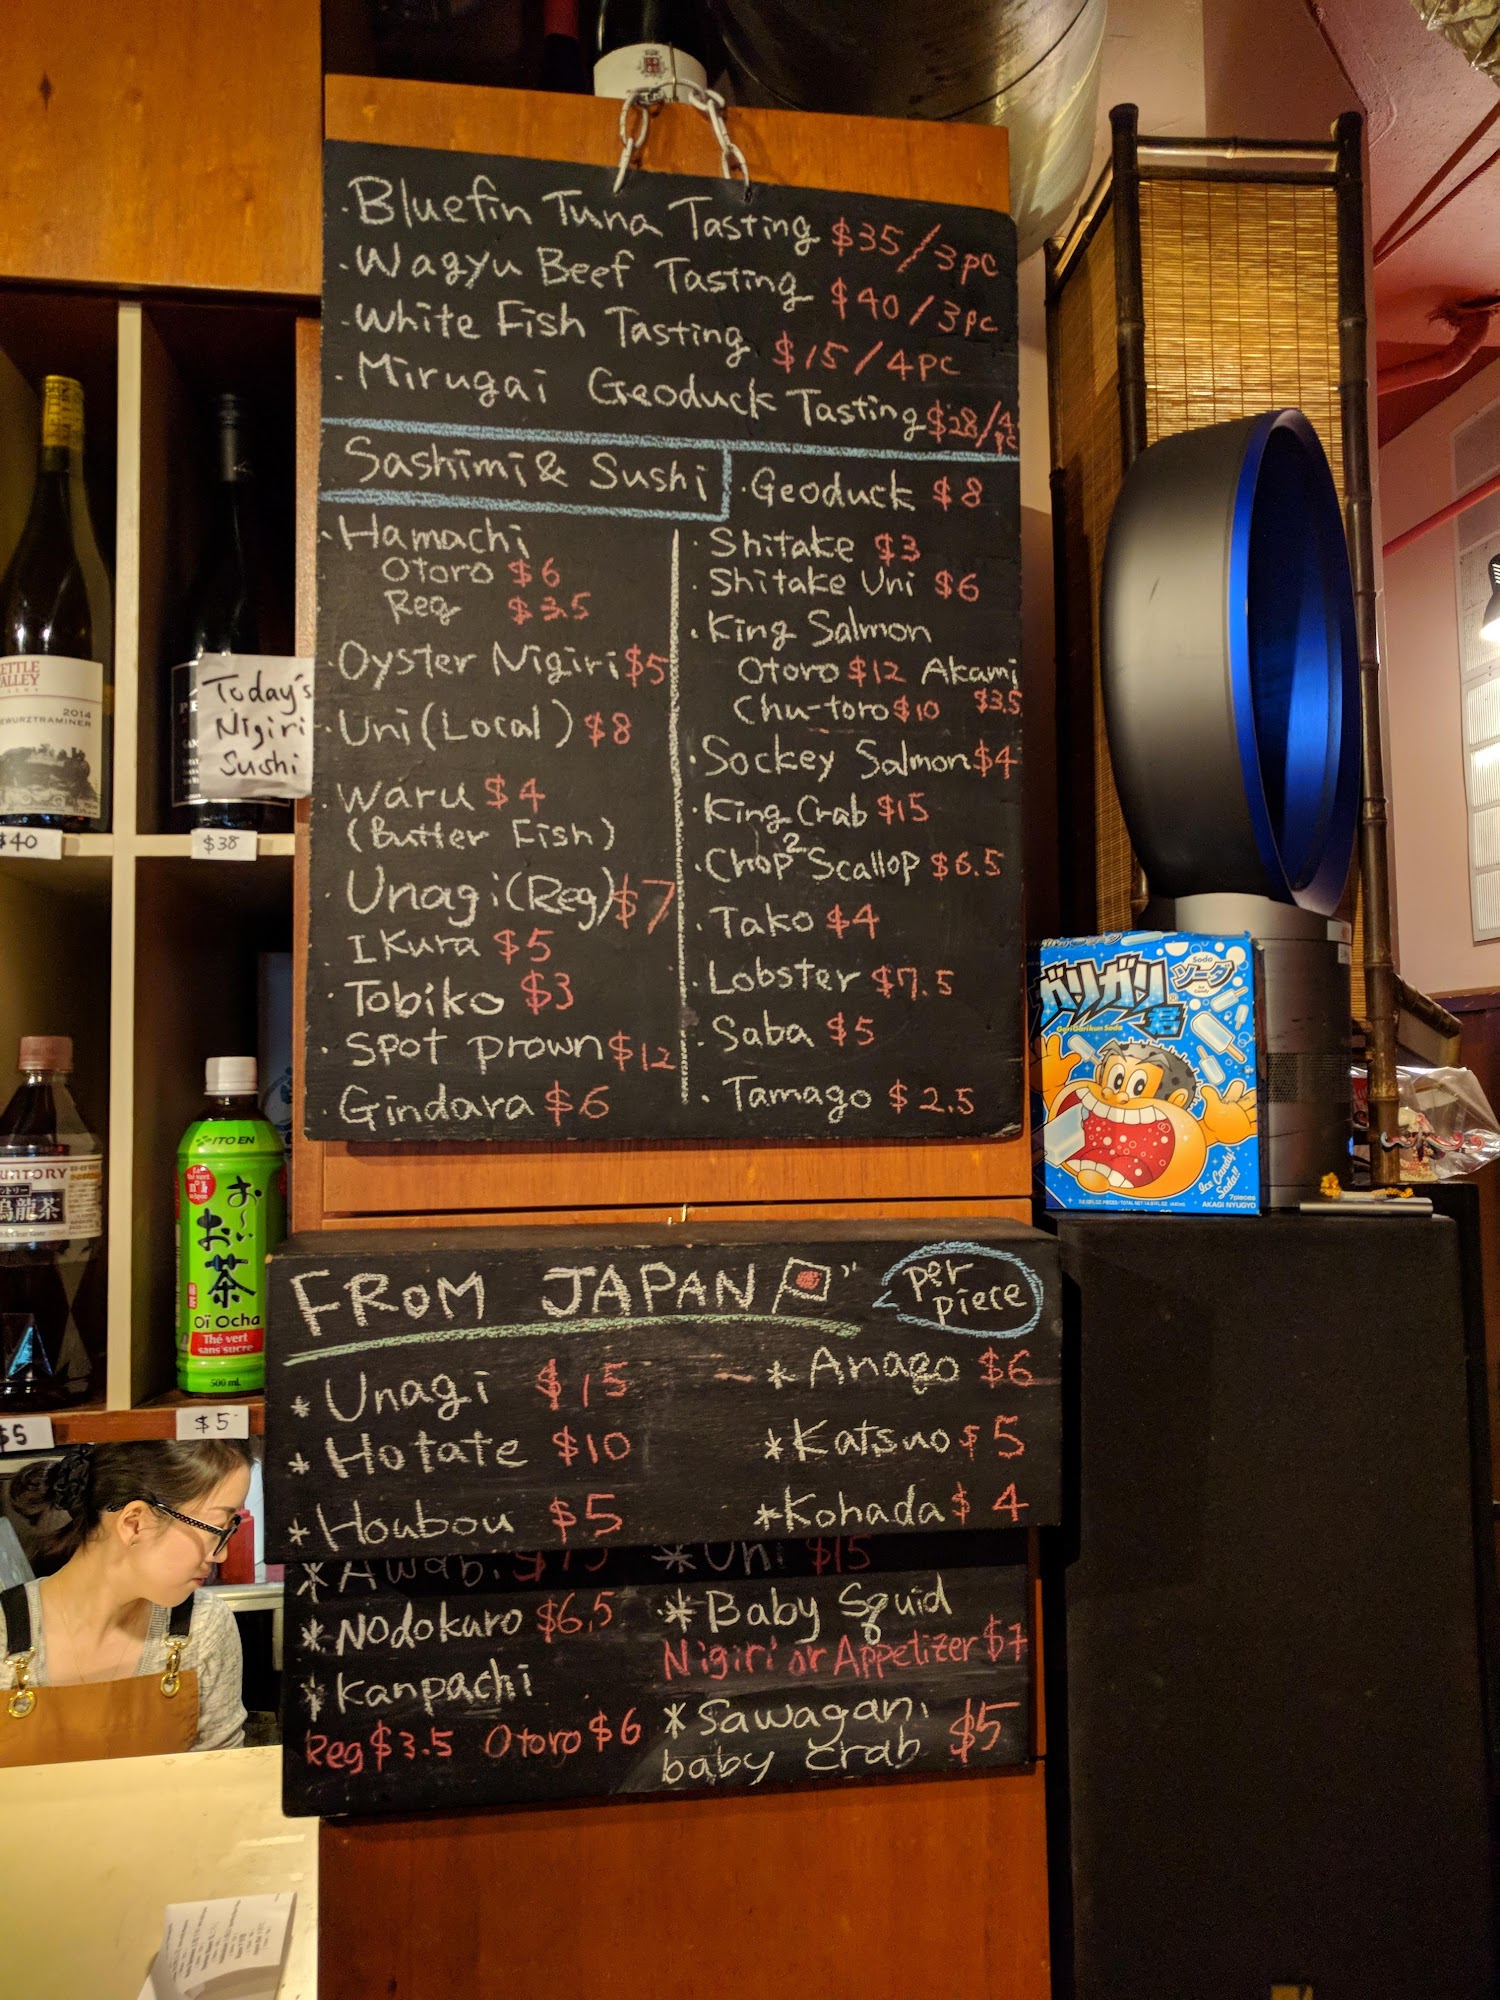 · Bluefin Tuna Tasting $35/3pc
· Wagyu Beef Tasting $40/3pc
· White Fish Tasting $15/4pc
· Mirugai Geoduck Tasting $28/4pc
Sashimi & Sushi
· Hamachi
Otoro $6
Reg $3.5
· Oyster Nigiri $5
· Uni (Local) $8
· Waru $4
(Butter Fish)
· Unagi (Reg) $7
· Ikura $5
· Tobiko $3
· Spot prown $12
· Gindara $6
· Geoduck $8
· Shitake $3
· Shitake Uni $6
· King Salmon
Otoro $12 Akami $3.5
Chu-toro $10
· Sockey Salmon $4
· King Crab $15
· Chop² Scallop $6.5
· Tako $4
· Lobster $7.5
· Saba $5
· Tamago $2.5
FROM JAPAN
per
piece
* Unagi $15
* Hotate $10
* Houbou $5
* Anago $6
* Katsuo $5
* Kohada $4
* Awabi $15
* Nodokuro $6.5
* Kanpachi
Reg $3.5 Otoro $6
* Uni $15
* Baby Squid
Nigiri or Appetizer $7
* Sawagani
baby crab $5
Today's
Nigiri
Sushi
KETTLE
VALLEY
2014
GEWURZTRAMINER
$40
$38
SUNTORY
烏龍茶
$5
ITO EN
お〜い
お茶
Oï Ocha
Thé vert
sans sucre
500 mL
$5
ガリガリ君
ソーダ
Soda
GariGarikun Soda
Ice Candy!
Soda!!
7pieces
AKAGI NYUGYO